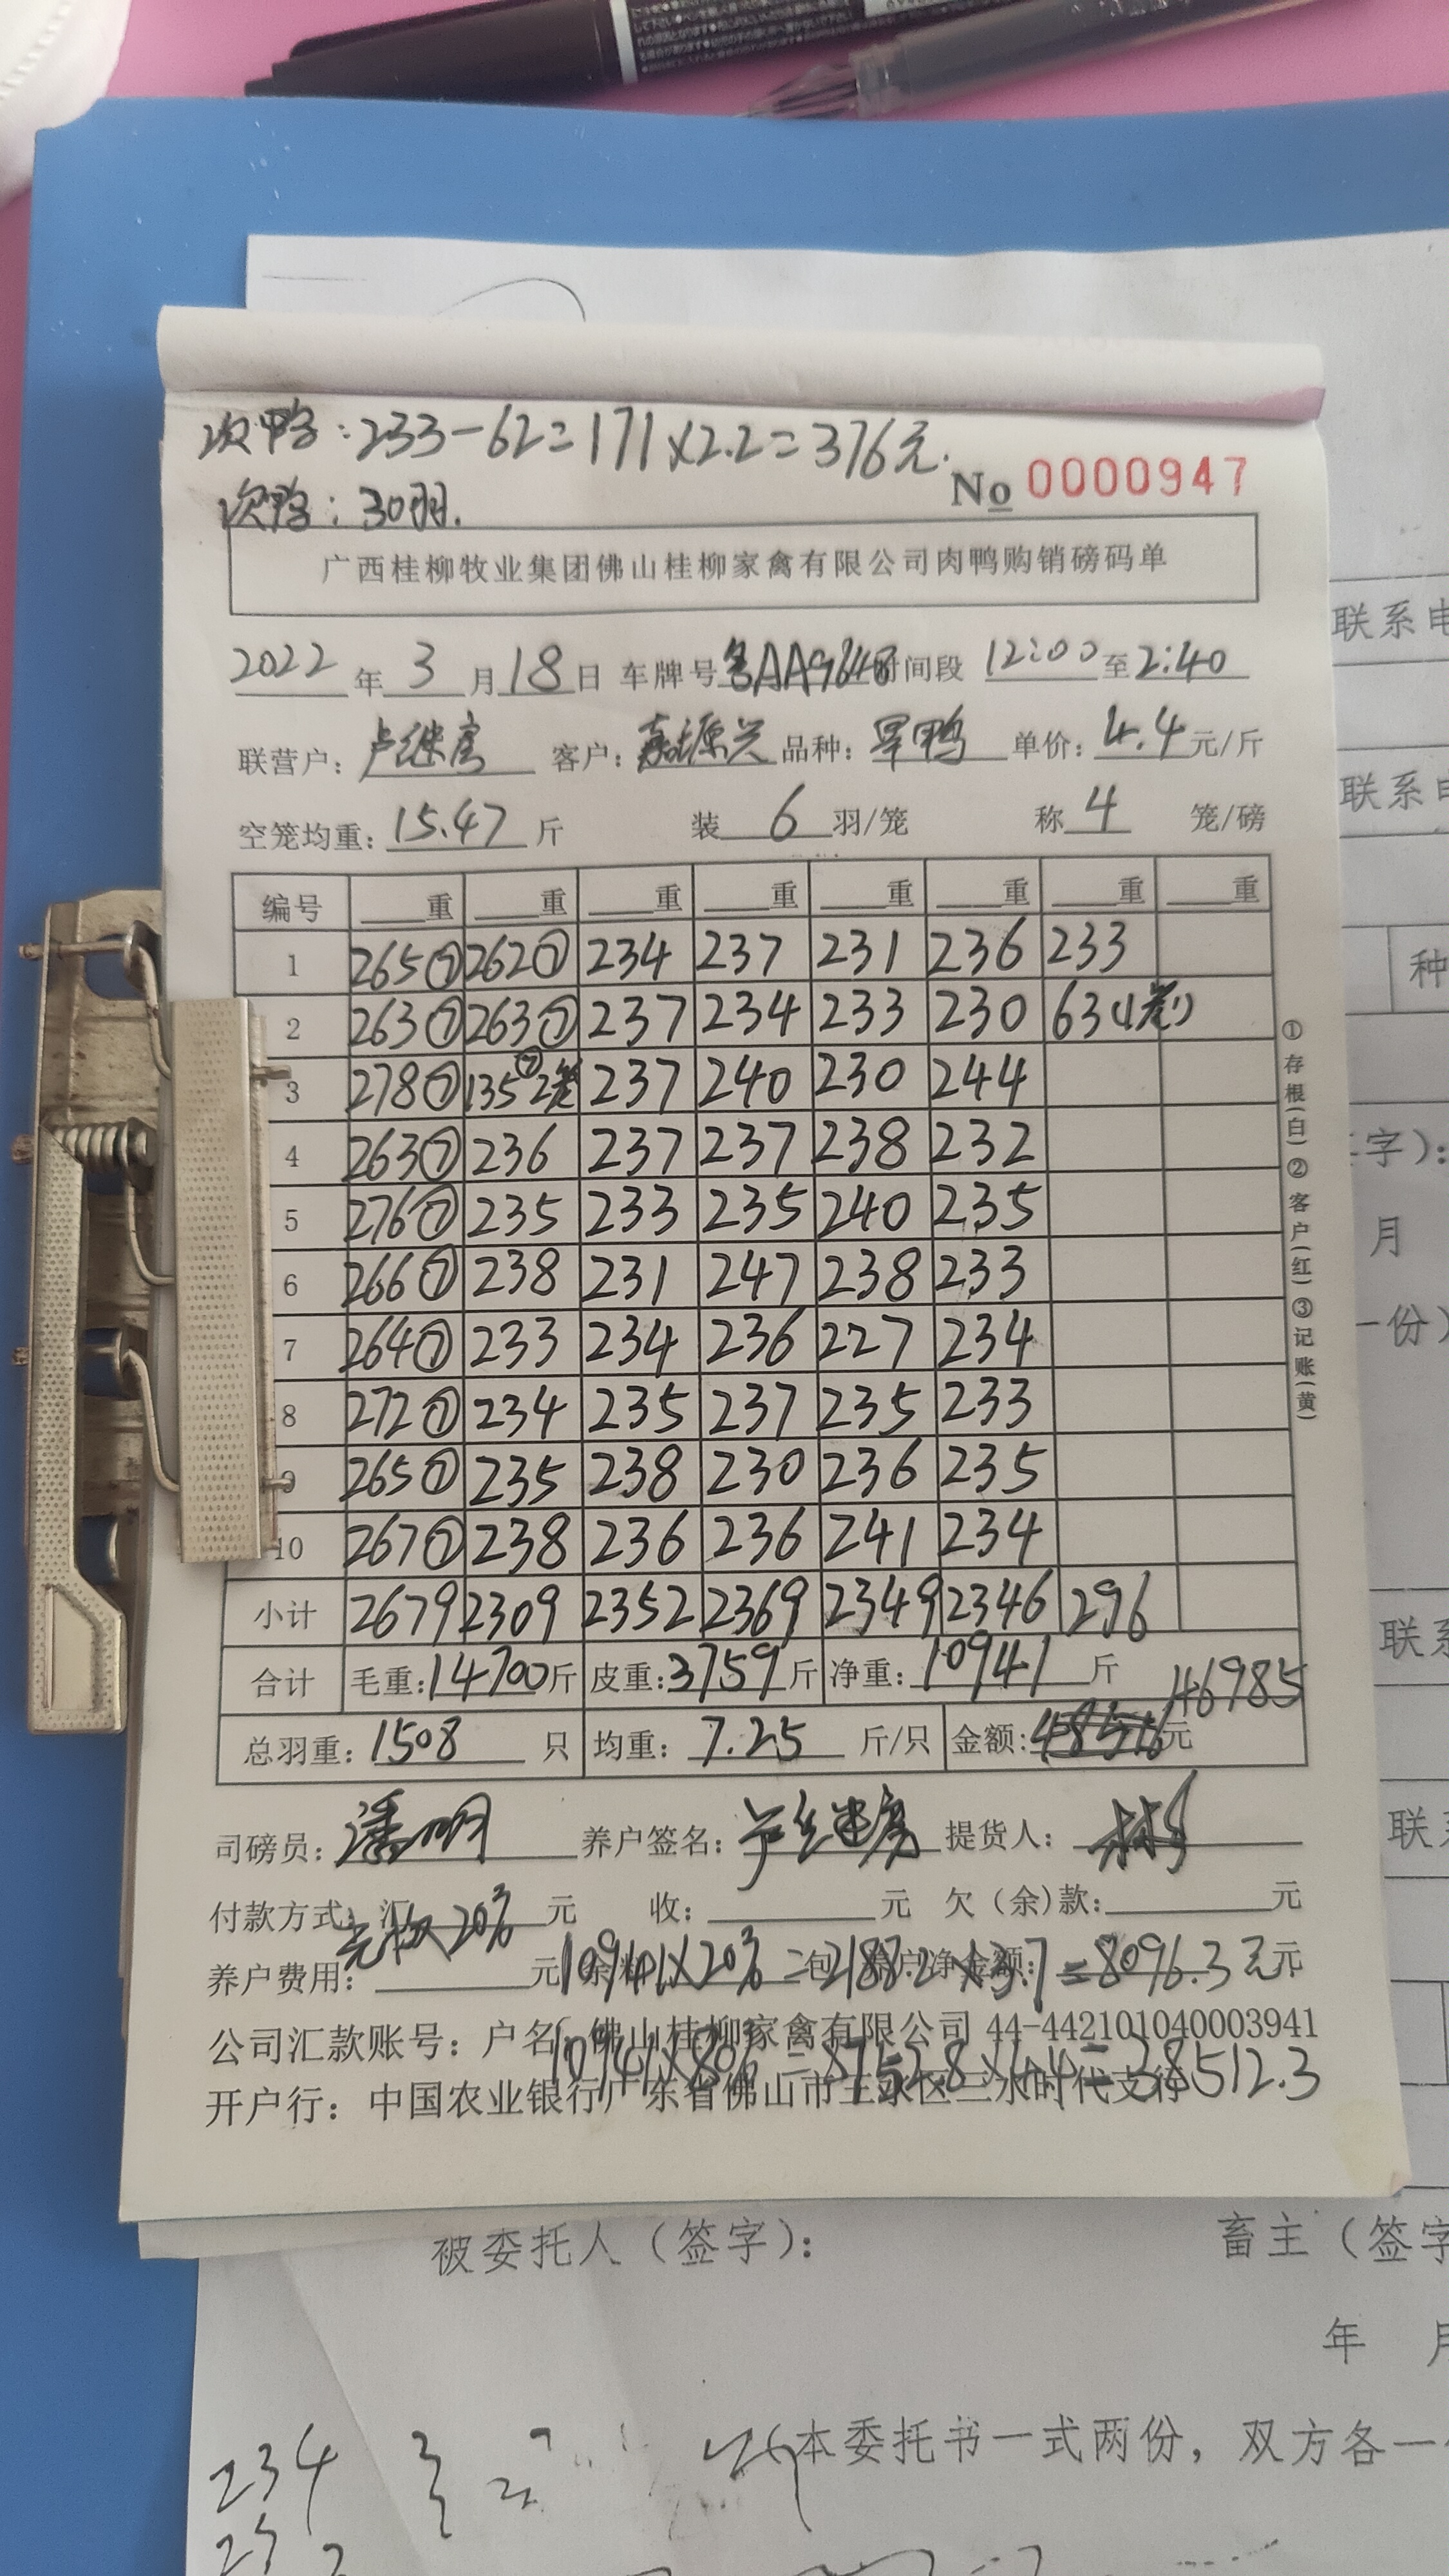 次鸭:233-62=171×2.2=376元.
次鸭:30羽.
No 0000947
广西桂柳牧业集团佛山桂柳家禽有限公司肉鸭购销磅码单
2022年3月18日 车牌号 时间段 12:00至2:40
联营户: 客户:嘉源兴 品种: 单价:4.4元/斤
空笼均重:15.47斤 装6羽/笼 称4笼/磅
编号 重 重 重 重 重 重 重 重
1 265⑦ 262⑦ 234 237 231 236 233
2 263⑦ 263⑦ 237 234 233 230 63(1笼)
3 278⑦ 135⑦2笼 237 240 230 244
4 263⑦ 236 237 237 238 232
5 276⑦ 235 233 235 240 235
6 266⑦ 238 231 247 238 233
7 264⑦ 233 234 236 227 234
8 272⑦ 234 235 237 235 233
9 265⑦ 235 238 230 236 235
10 267⑦ 238 236 236 241 234
小计 2679 2309 2352 2369 2349 2346 296
合计 毛重:14700斤 皮重:3759斤 净重:10941斤
46985
总羽重:1508只 均重:7.25斤/只 金额:元
司磅员:潘明 养户签名: 提货人:
付款方式:汇 元 收: 元 欠(余)款: 元
20%
养户费用: 元
10941×20%=2188.2×3.7=8096.3元
公司汇款账号:户名:佛山桂柳家禽有限公司 44-442101040003941
10941×80%=8752.8×4.4=38512.3
开户行:中国农业银行广东省佛山市三水区三水时代支行
①存根(白)②客户(红)③记账(黄)
联系电
联系电
种
字):
月
一份)
联系
联系
被委托人(签字): 畜主(签字
年 月
本委托书一式两份,双方各一
234